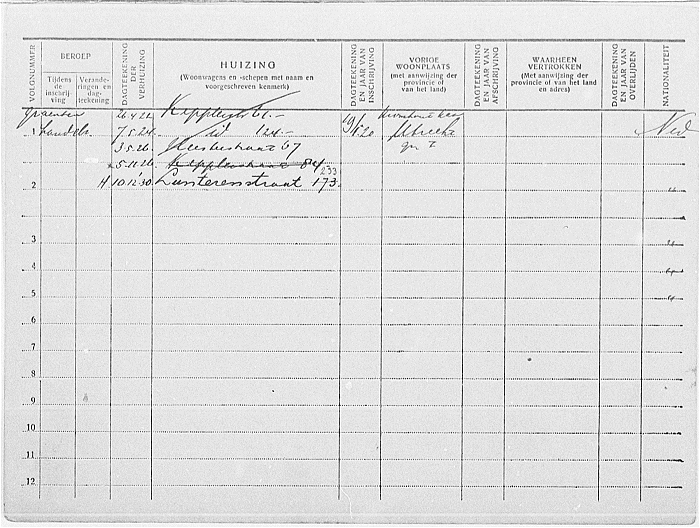 VOLGNUMMER
BEROEP
Tijdens de inschrijving
Veranderingen en dagteekening
DAGTEEKENING DER VERHUIZING
HUIZING
(Woonwagens en -schepen met naam en voorgeschreven kenmerk)
DAGTEEKENING EN JAAR VAN INSCHRIJVING
VORIGE WOONPLAATS
(met aanwijzing der provincie of van het land)
DAGTEEKENING EN JAAR VAN AFSCHRIJVING
WAARHEEN VERTROKKEN
(Met aanwijzing der provincie of van het land en adres)
DAGTEEKENING EN JAAR VAN OVERLIJDEN
NATIONALITEIT
groenten 26.4.22 Kepplerstr 61.-
1 handelr 7.5.24. id 124.- 19/1 20 Utrecht Ned
3.5.26. 67
5.11.26. Kepplerstraat 84
233
2 H 10.12.'30. Lunterenstraat 173.
3
4
5
6
7
8
9
10
11
12